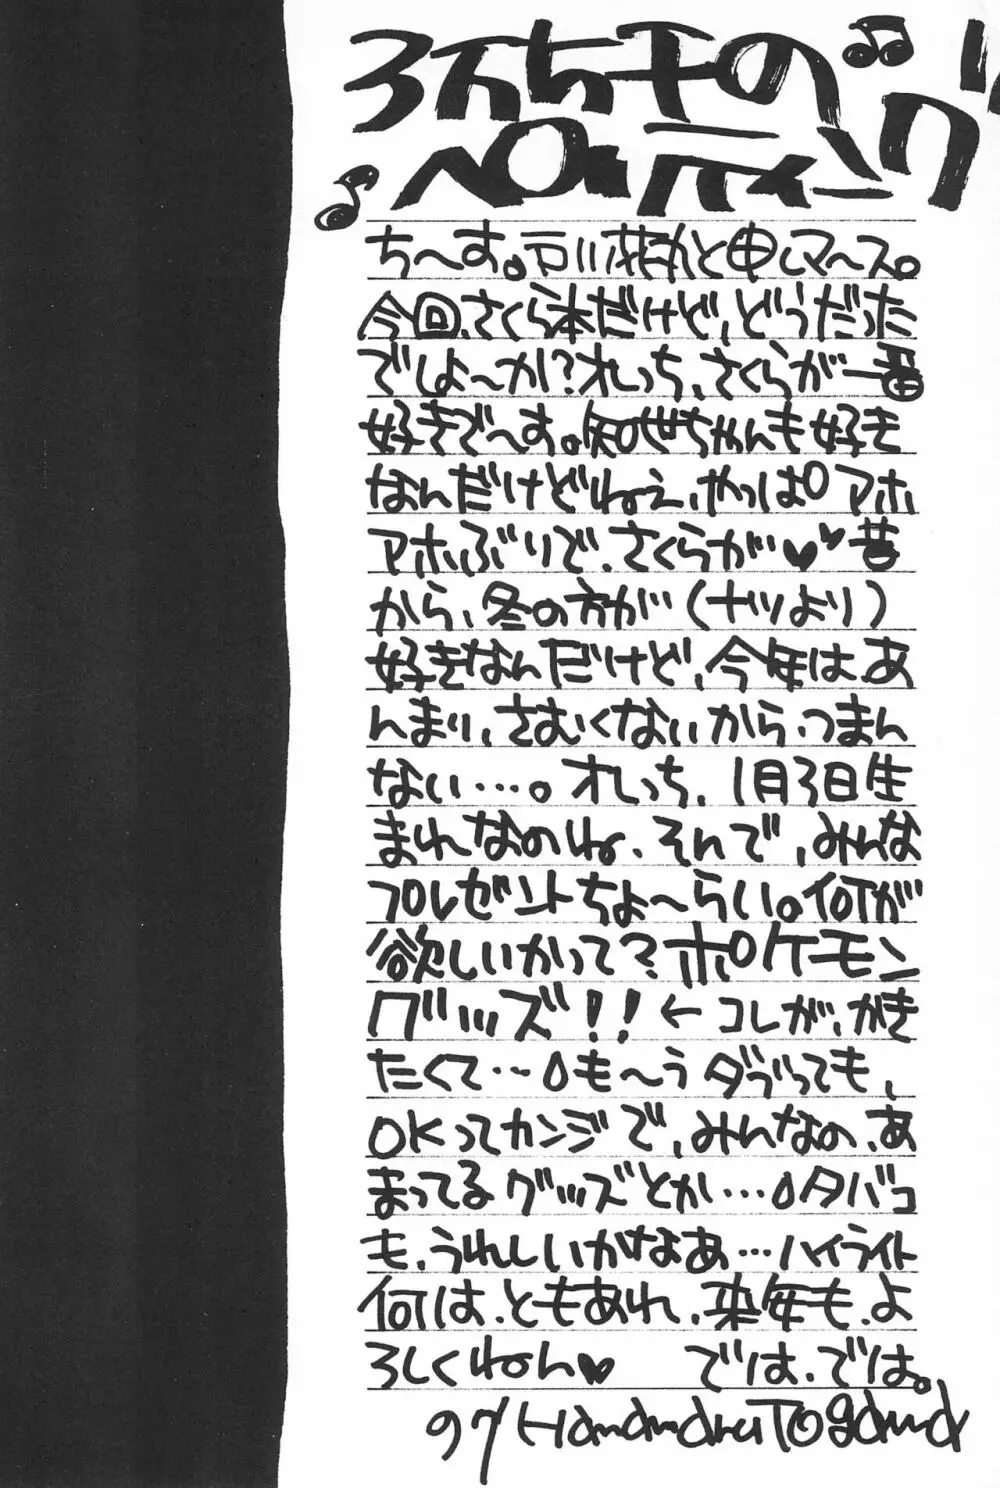 ち〜す。戸川花丸と申しマ〜ス。
今回、さくら本だけど、どうだった
でしょ〜か?オレっち、さくらが一番
好きで〜す。知世ちゃんも好き
なんだけどねェ、やっぱ。アホ
アホぶりで、さくらが♥♥昔
から、冬の方が(ナツより)
好きなんだけど、今年は、あ
んまり、さむくないから、つまん
ない…。オレっち、1月3日生
まれなのね、そんで、みんな
プレゼントちょ〜らい。何が
欲しいかって?ポケモン
グッズ!!←コレが、かき
たくて…。も〜うダブっても、
OKってカンジで、みんなの、あ
まってるグッズとか…。タバコ
も、うれしいがなあ…ハイライト
何は、ともあれ、来年も、よ
ろしくねん♥ では、では。
97